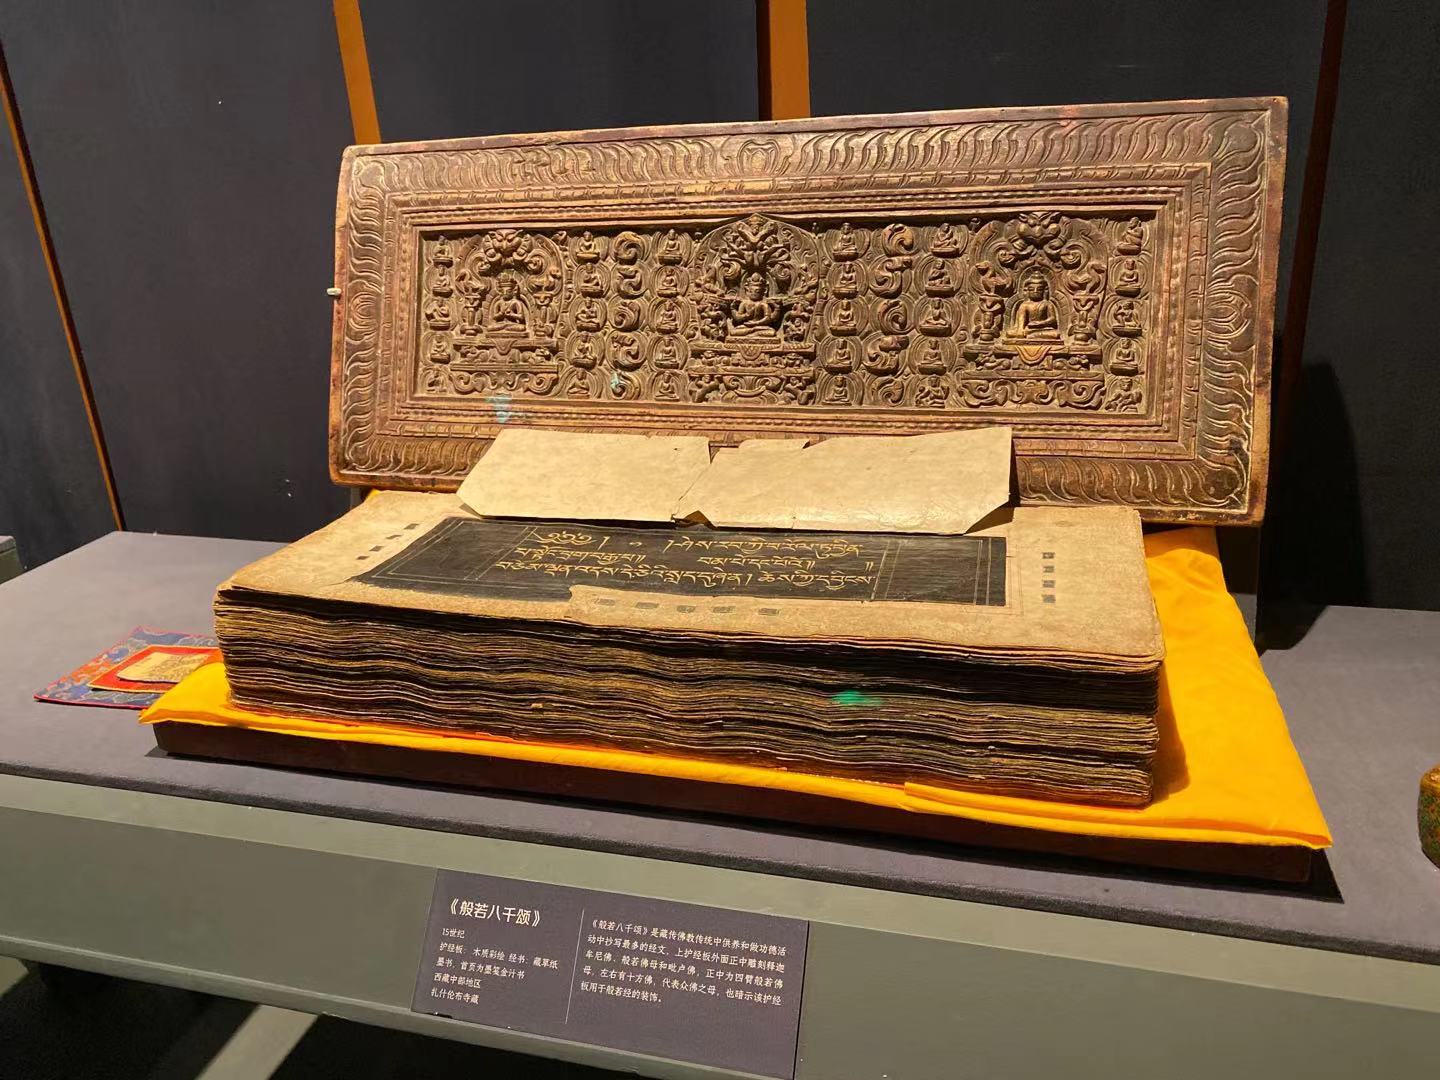 ༄༅༅། ། །ཤེས་རབ་ཀྱི་ཕ་རོལ་ཏུ་ཕྱིན་
《般若八千颂》
15世纪
护经板：木质彩绘 经书：藏草纸
墨书，首页为墨笺金汁书
西藏中部地区
扎什伦布寺藏
《般若八千颂》是藏传佛教传统中供养和做功德活
动中抄写最多的经文。上护经板外面正中雕刻释迦
牟尼佛、般若佛母和毗卢佛，正中为四臂般若佛
母，左右有十方佛，代表众佛之母，也暗示该护经
板用于般若经的装饰。